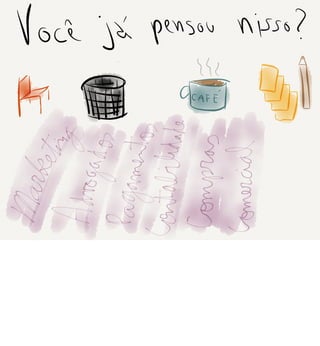 Você já pensou nisso?
CAFÉ
Marketing
Advogados
Pagamentos
Contabilidade
Compras
Comercial